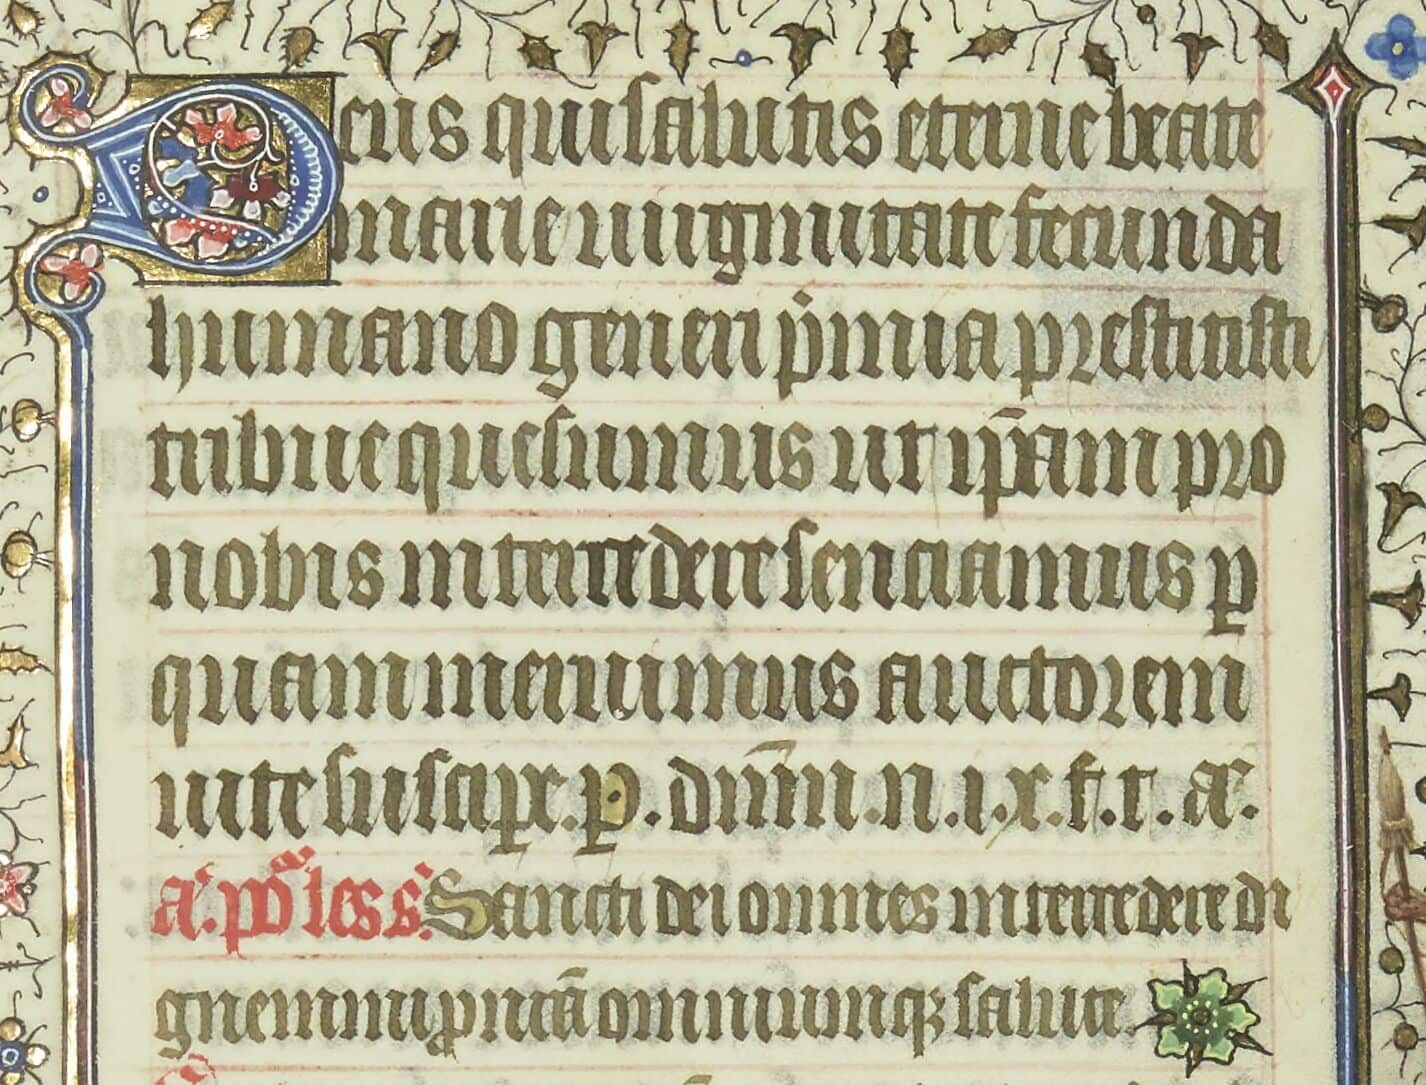 Deus qui salutis eterne beate
marie uirginitate fecunda
humano generi p̍mia prestitisti
tribue quesumus ut ip̄am pro
nobis intercedere senciamus ꝑ
quam meruimus auctorem
uite suscipe. ꝑ. dn̄m. n. i. x. f. t. ⁊c.
Sancti dei omnes intercedere di
gnemini ꝓ nr̄a omniumqꝫ salute.